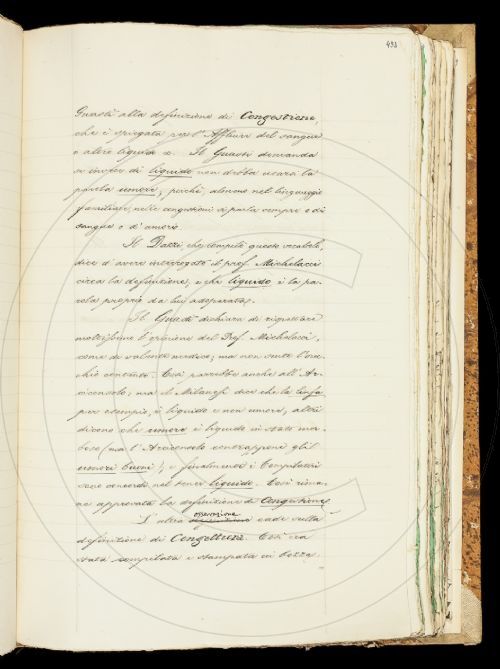 493
Guasti alla definizione di Congestione,
che è spiegata coll'Afflusso del sangue
o altro liquido a. Il Guasti domanda
se invece di liquido non debba usarsi la
parola umore, poichè, almeno nel linguaggio
familiare, nelle congestioni si parla sempre o di
sangue o d'umori.
Il Dazzi, che compilò questo vocabolo,
dice d'avere interrogato il prof. Michelacci
circa la definizione, e che liquido è la pa-
rola propria da lui adoperata.
Il Guasti dichiara di rispettare
moltissimo l'opinione del Prof. Michelacci,
come di valente medico; ma non sente l'orec-
chio contento. Così parrebbe anche all'Ar-
ciconsolo; ma il Milanesi dice che la linfa
per esempio, è liquido e non umore, altri
dicono che umore è liquido in stato mor-
boso (ma l'Arciconsolo contrappone gli
umori buoni), e finalmente i Compilatori
sono concordi nel tener liquido. Così rima-
ne approvata la definizione di Congestione.
L'altra osservazione cade sulla
definizione di Congettura. Essa era
stata compilata e stampata in bozza